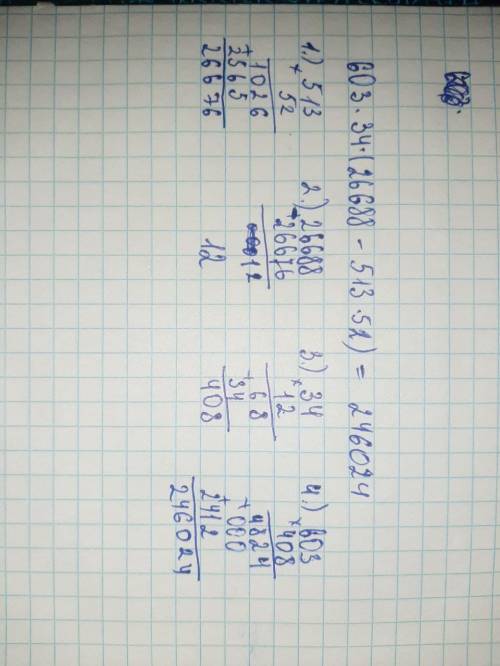 603 · 34 · (26688 - 513 · 52) = 246024
1.) 513
× 52
1026
+ 2565
26676
2.) 26688
- 26676
12
12
3.) 34
× 12
68
+ 34
408
4.) 603
× 408
4824
+ 000
+ 2412
246024